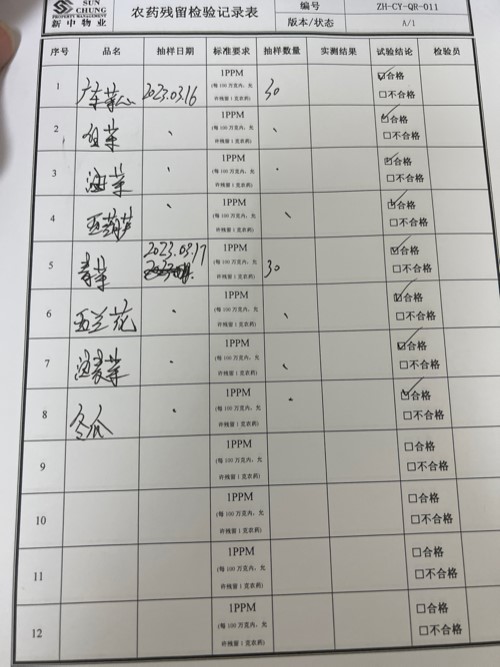 SUN
CHUNG
PROPERTY MANAGEMENT
新中物业
农药残留检验记录表
编号 ZH-CY-QR-011
版本/状态 A/1
序号 品名 抽样日期 标准要求 抽样数量 实测结果 试验结论 检验员
1 广东菜心 2023.03.16 1PPM (每100万克内,允许残留1克农药) 30 ☑合格 □不合格
2 包菜 、 1PPM (每100万克内,允许残留1克农药) 、 ☑合格 □不合格
3 油菜 、 1PPM (每100万克内,允许残留1克农药) 、 ☑合格 □不合格
4 西葫芦 、 1PPM (每100万克内,允许残留1克农药) 、 ☑合格 □不合格
5 青菜 2023.03.17 1PPM (每100万克内,允许残留1克农药) 30 ☑合格 □不合格
6 西兰花 、 1PPM (每100万克内,允许残留1克农药) 、 ☑合格 □不合格
7 油麦菜 、 1PPM (每100万克内,允许残留1克农药) 、 ☑合格 □不合格
8 冬瓜 、 1PPM (每100万克内,允许残留1克农药) 、 ☑合格 □不合格
9 1PPM (每100万克内,允许残留1克农药) □合格 □不合格
10 1PPM (每100万克内,允许残留1克农药) □合格 □不合格
11 1PPM (每100万克内,允许残留1克农药) □合格 □不合格
12 1PPM (每100万克内,允许残留1克农药) □合格 □不合格